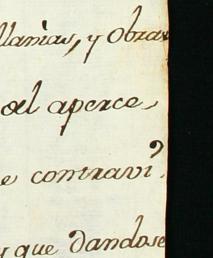 llanias, y obras
al aperce,
e contravi.
y que dandose